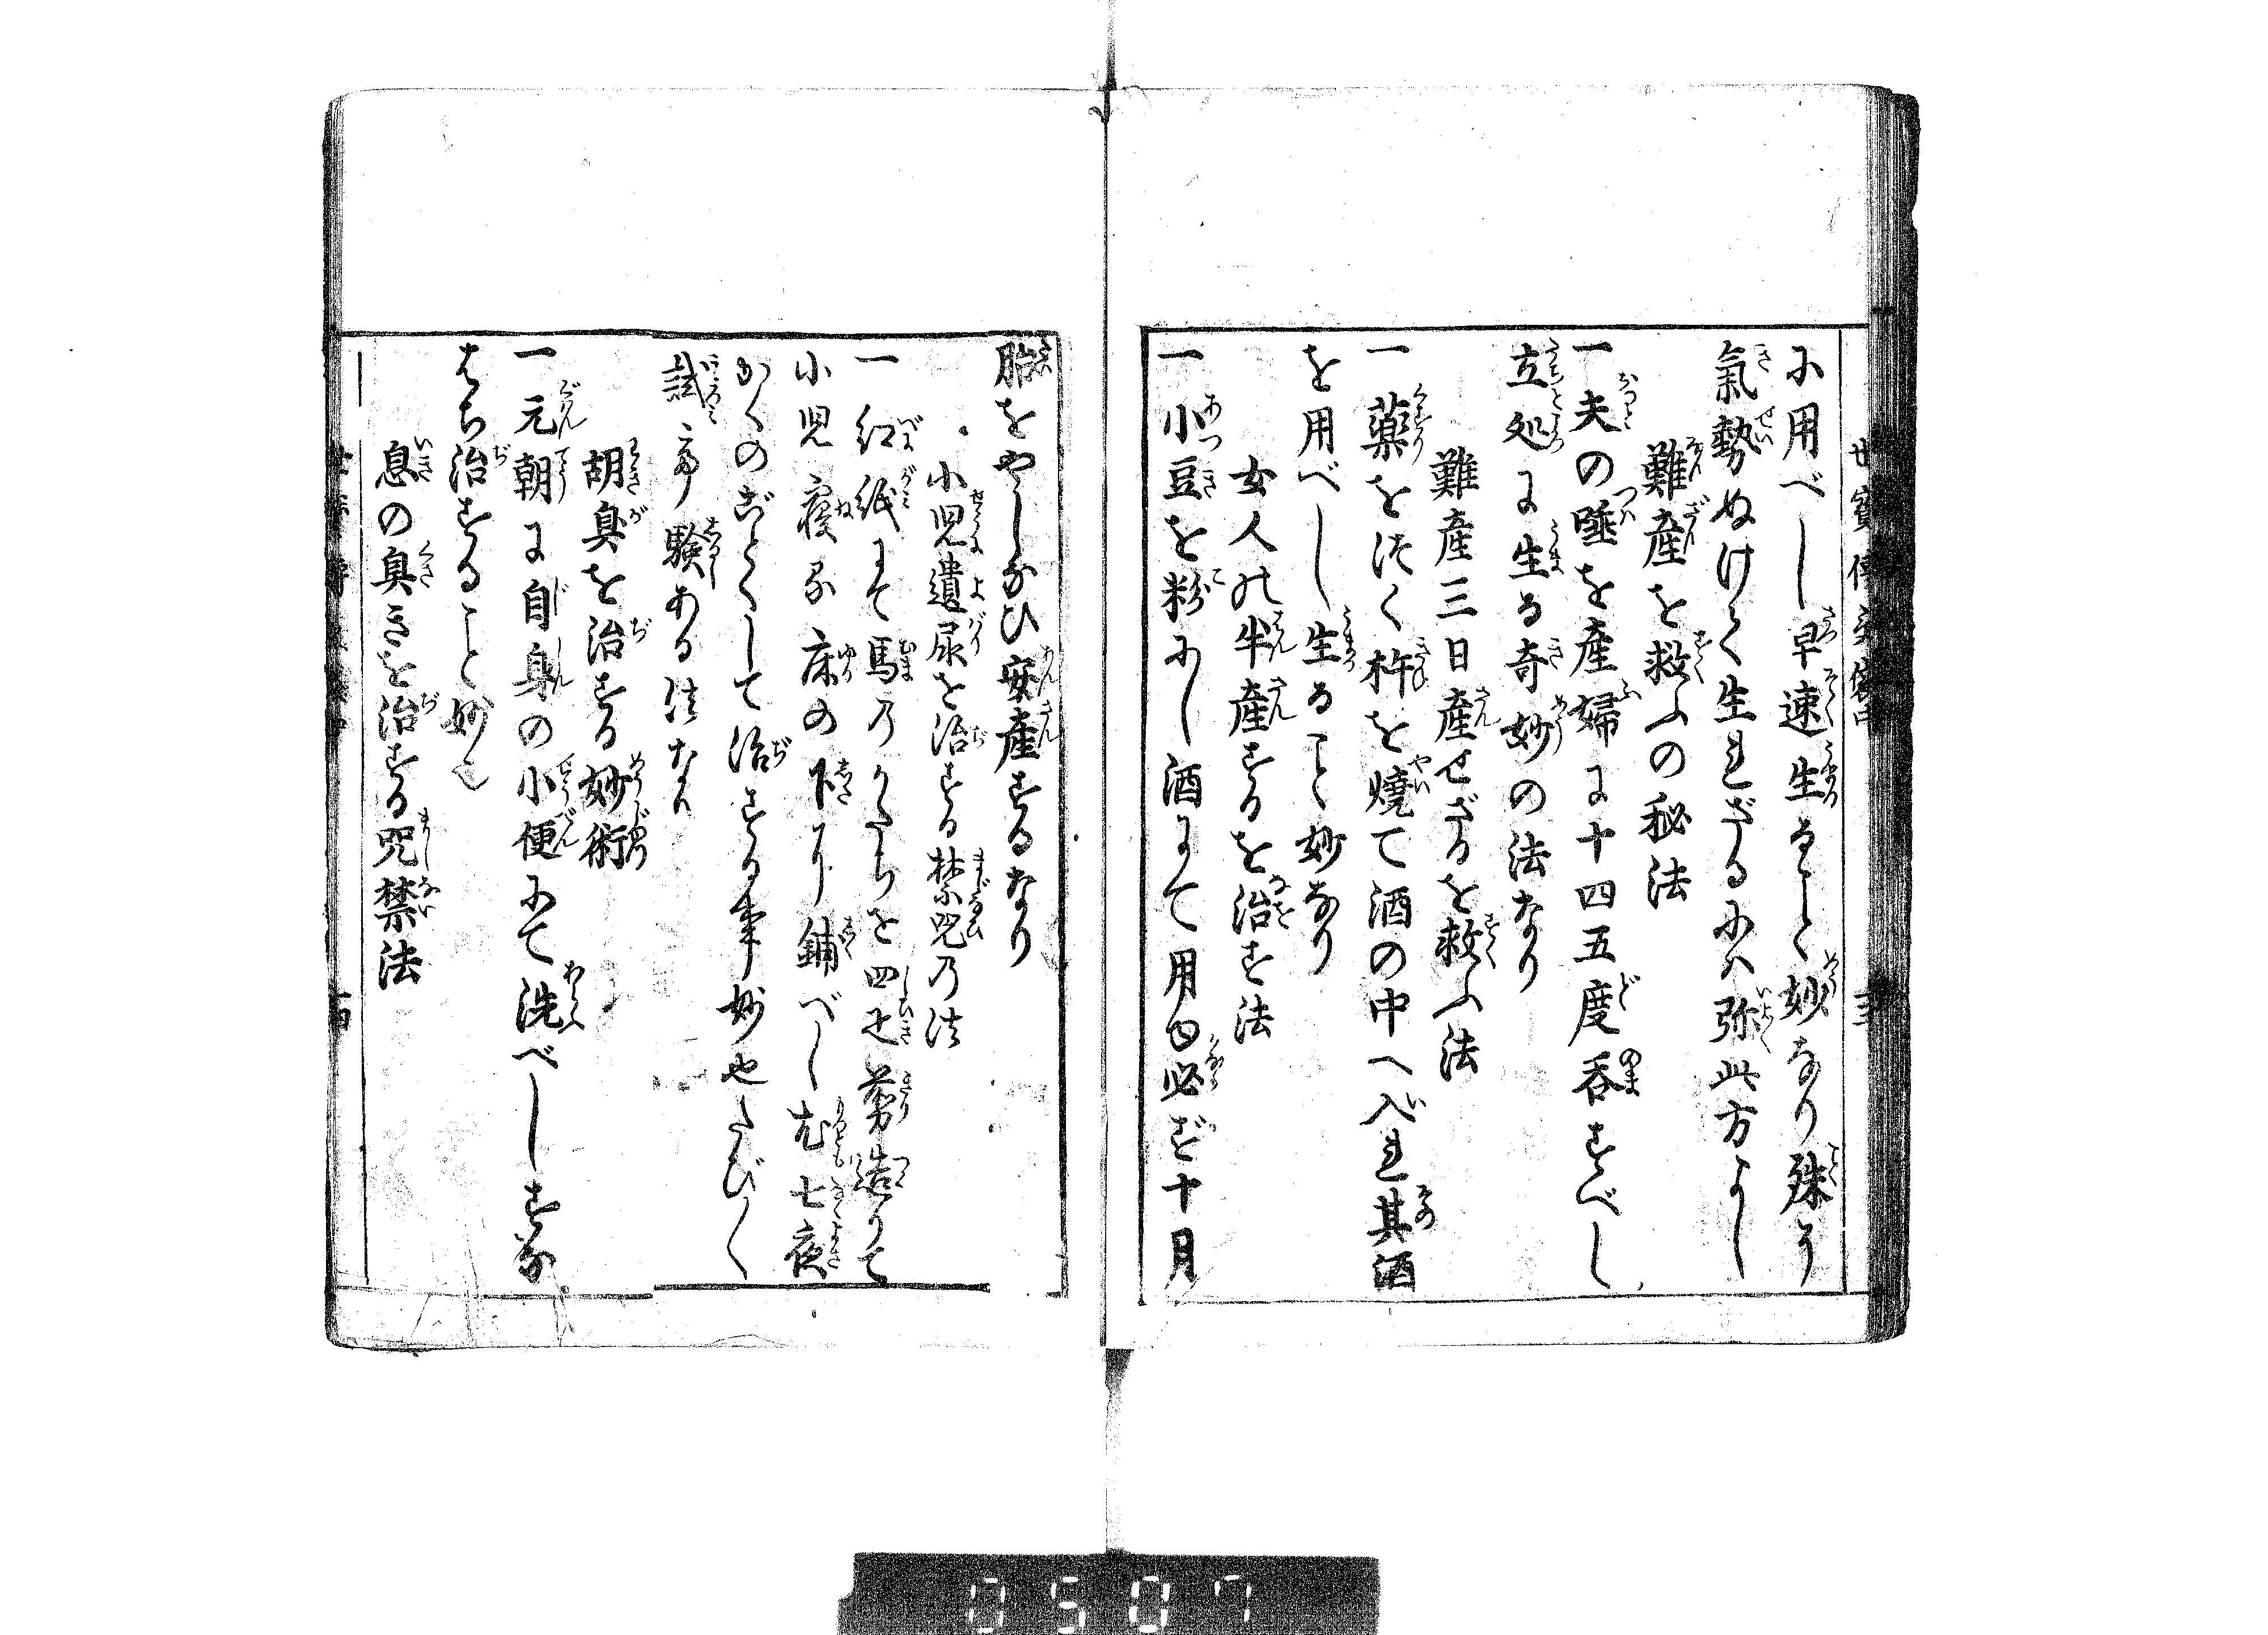 に用べし早速生るゝこと妙なり殊に
氣勢ぬけて生れざるにハ弥此方よし
難産を救ふの秘法
一夫の唾を産婦に十四五度呑すべし
立処に生る奇妙の法なり
難産三日産せざるを救ふ法
一藥をつく杵を燒て酒の中へ入れ其酒
を用べし生るゝこと妙なり
女人の半産するを治す法
一小豆を粉にし酒にて用ゆ必ず十月
胎をやしなひ安産するなり
小児遺尿を治する禁咒の法
一紅紙にて馬のかたちを四疋剪造りて
小児寝る床の下に鋪べし尤七夜
かくのごとくして治する事妙也たび〳〵
試て験ある法なり
胡臭を治する妙術
一元朝に自身の小便にて洗べしすな
はち治すること妙也
息の臭きを治する咒禁法
0507